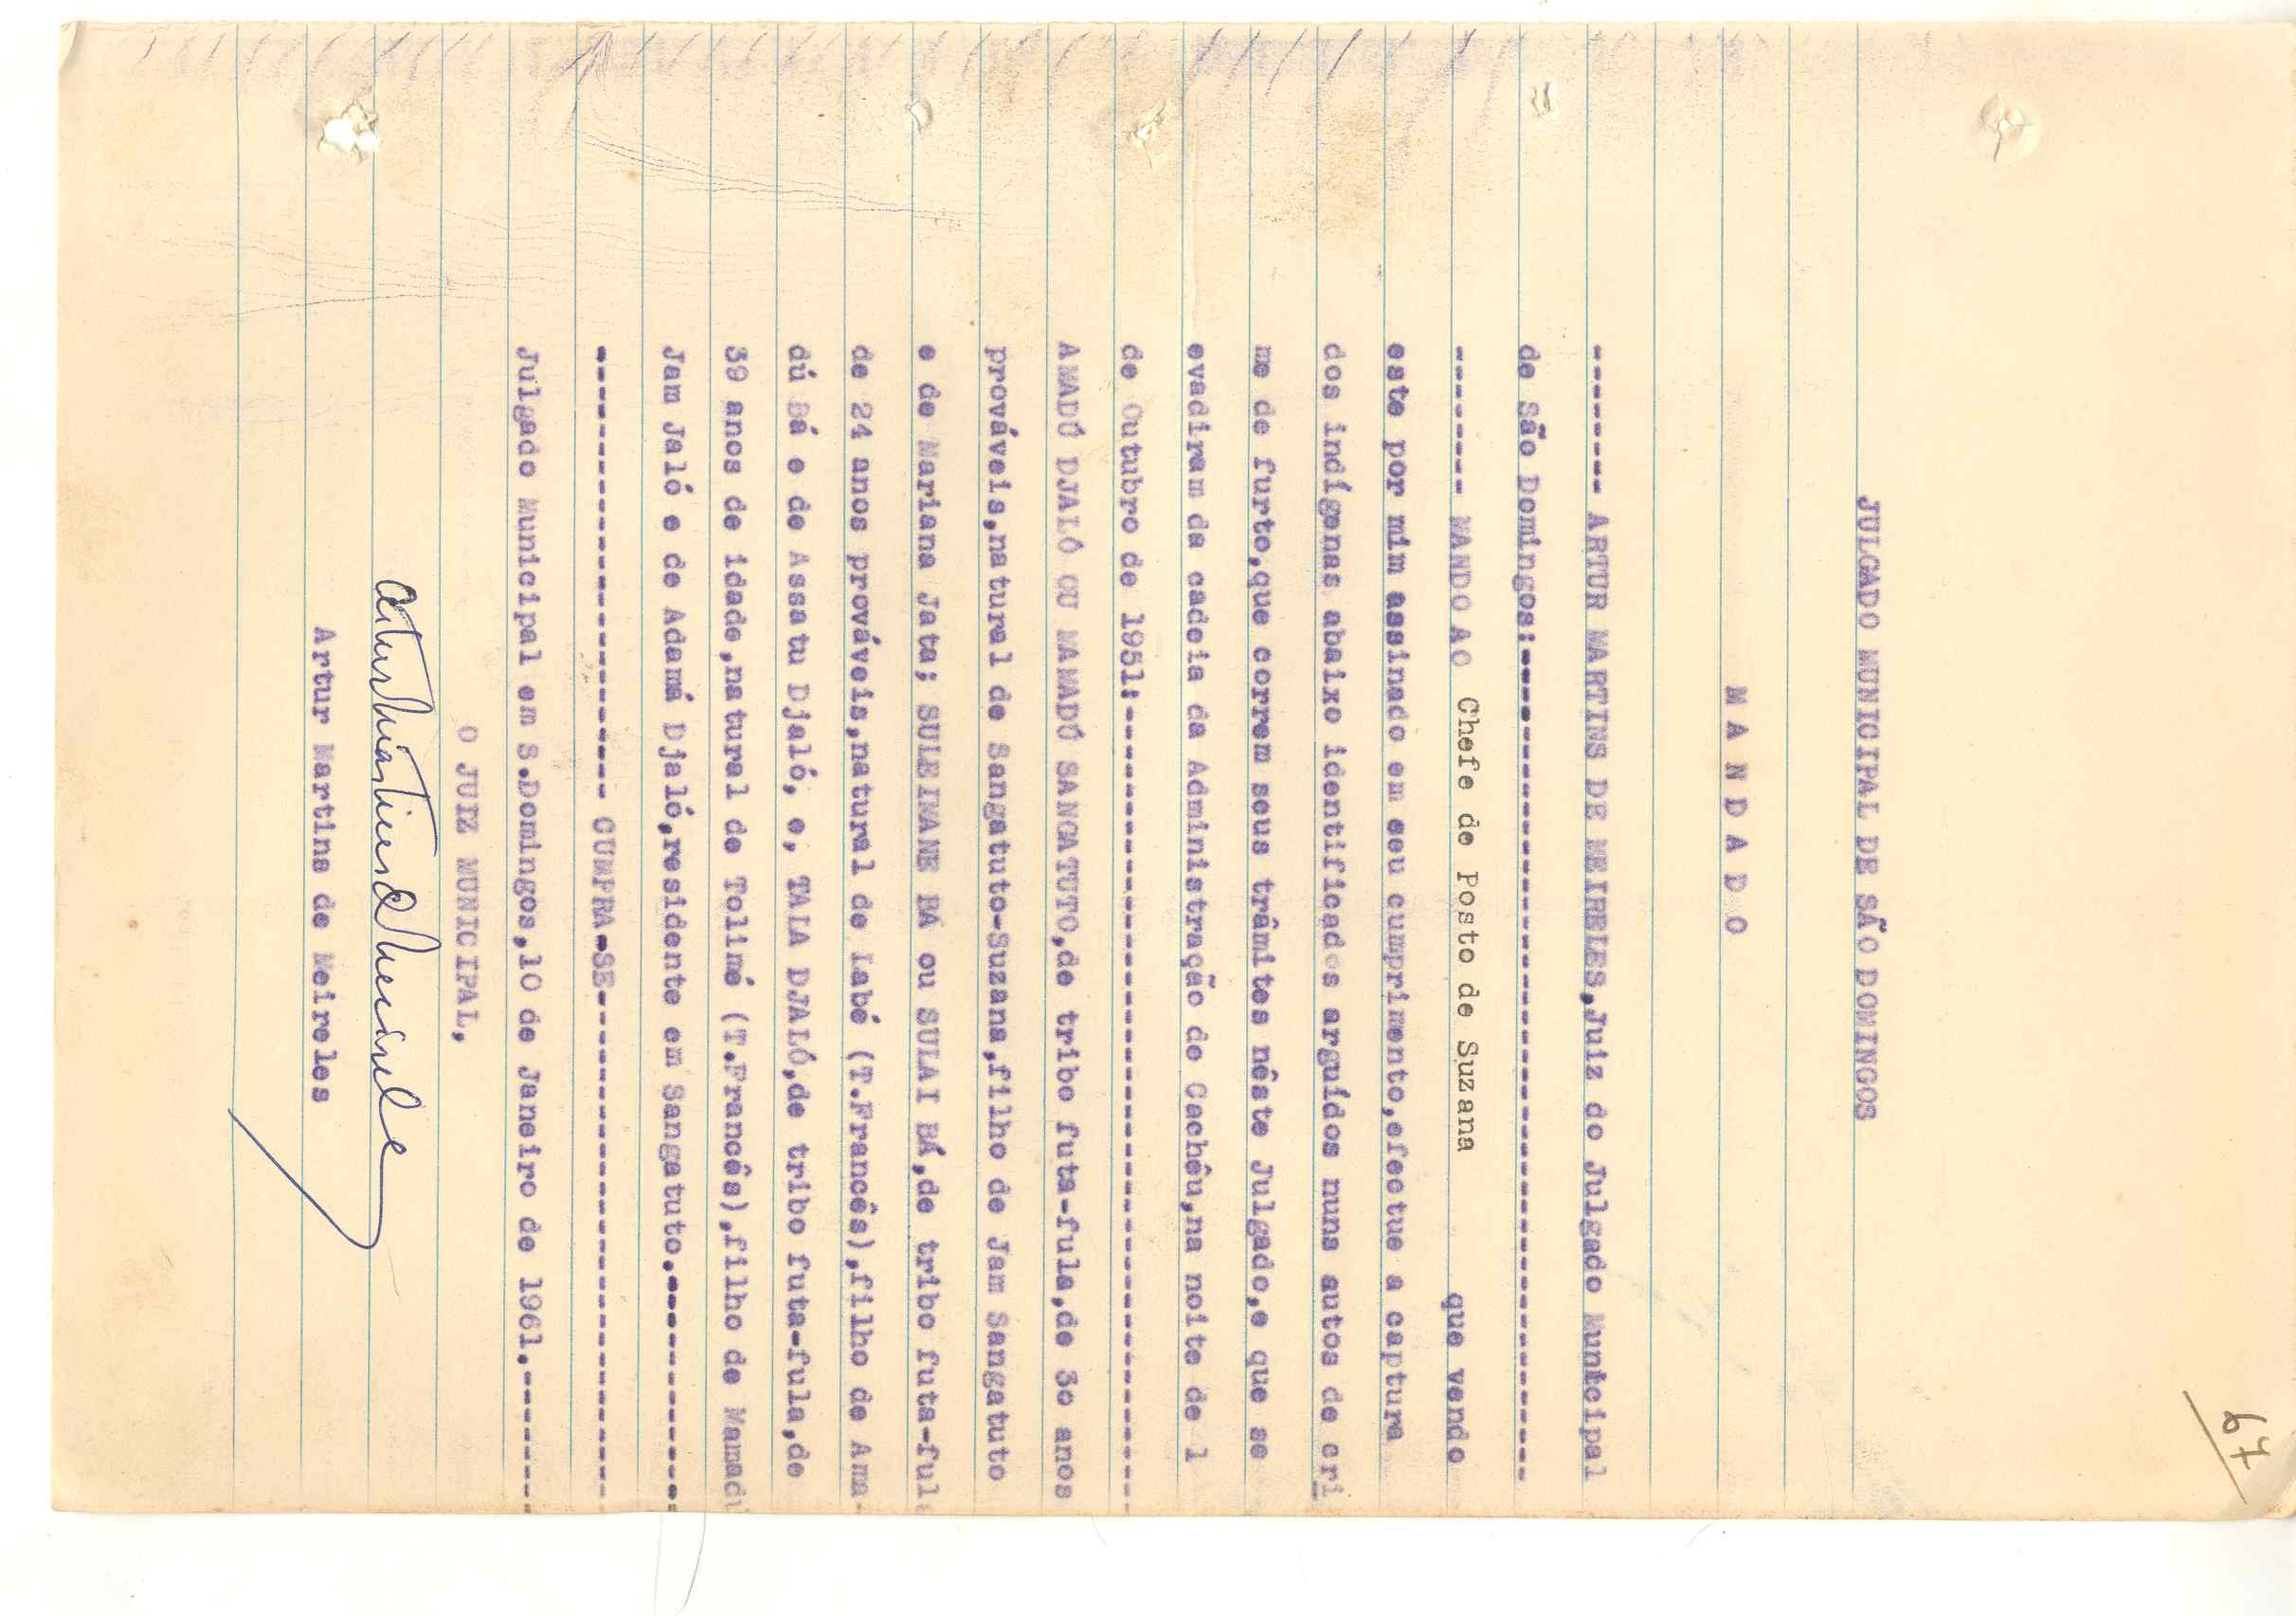 67
JULGADO MUNICIPAL DE SÃO DOMINGOS
M A N D A D O
------- ARTUR MARTINS DE MEIRELES,Juiz do Julgado Municipal
de São Domingos:----------------------------------------
------- MANDO AO Chefe de Posto de Suzana que vendo
este por mim assinado em seu cumprimento,efectue a captura
dos indígenas abaixo identificados arguídos nuns autos de cri
me de furto,que correm seus trâmites nêste Julgado,e que se
evadiram da cadeia da Administração de Cachêu,na noite de 1
de Outubro de 1951:--------------------------------------
AMADÚ DJALÓ OU MAMADÚ SANGATUTO,de tribo futa-fula,de 3o anos
prováveis,natural de Sangatuto-Suzana,filho de Jam Sangatuto
e de Mariana Jata; SULEIMANE BÁ ou SULAI BÁ,de tribo futa-fula
de 24 anos prováveis,natural de Labé (T.Francês),filho de Ama-
dú Bá e de Assatu Djaló, e, TALA DJALÓ,de tribo futa-fula,de
39 anos de idade,natural de Tolimé (T.Francês),filho de Mamadú
Jam Jaló e de Adamá Djaló,residente em Sangatuto.-----------
---------------------- CUMPRA-SE--------------------------
Julgado Municipal em S.Domingos,10 de Janeiro de 1961.-------
O JUIZ MUNICIPAL,
Artur Martins de Meireles
Artur Martins de Meireles